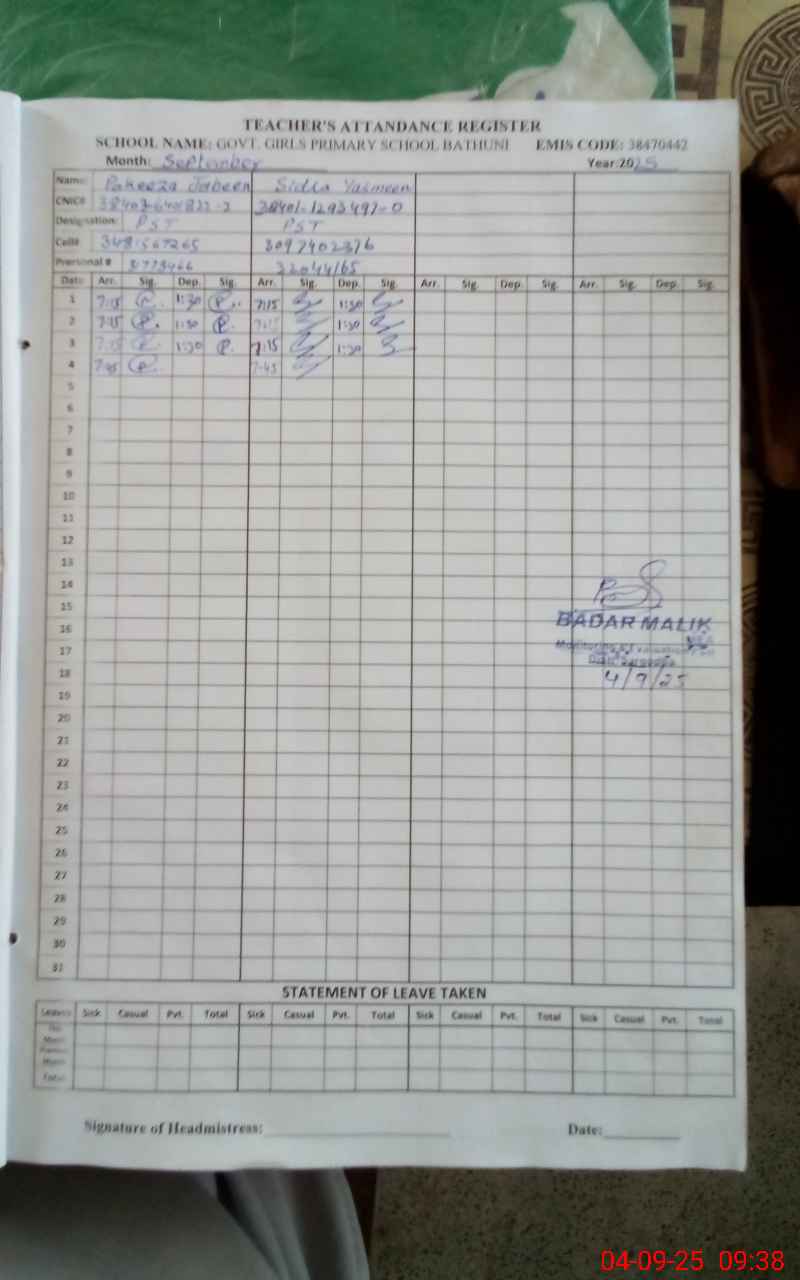 TEACHER'S ATTANDANCE REGISTER
SCHOOL NAME: GOVT. GIRLS PRIMARY SCHOOL BATHUNI EMIS CODE: 38470442
Month: September Year:2025
Name: Pakeeza Jabeen Yasmeen
CNIC# 38401-1293497-0
Designation: PST PST
Cell# 3097402376
Prersonal # 32044165
Date Arr. Sig. Dep. Sig. Arr. Sig. Dep. Sig. Arr. Sig. Dep. Sig. Arr. Sig. Dep. Sig.
1 7:15 1:30 7:15 1:30
2 7:15 1:30 7:15 1:30
3 7:15 1:30 7:15 1:30
4 7:45 7:45
5
6
7
8
9
10
11
12
13
14
15
16 BADAR MALIK
17 Monitoring & Evaluation
18 Distt. Sargodha
4/9/25
19
20
21
22
23
24
25
26
27
28
29
30
31
STATEMENT OF LEAVE TAKEN
Leaves Sick Casual Pvt. Total Sick Casual Pvt. Total Sick Casual Pvt. Total Sick Casual Pvt. Total
Month
Previous
Month
Total
Signature of Headmistress: Date:
04-09-25 09:38